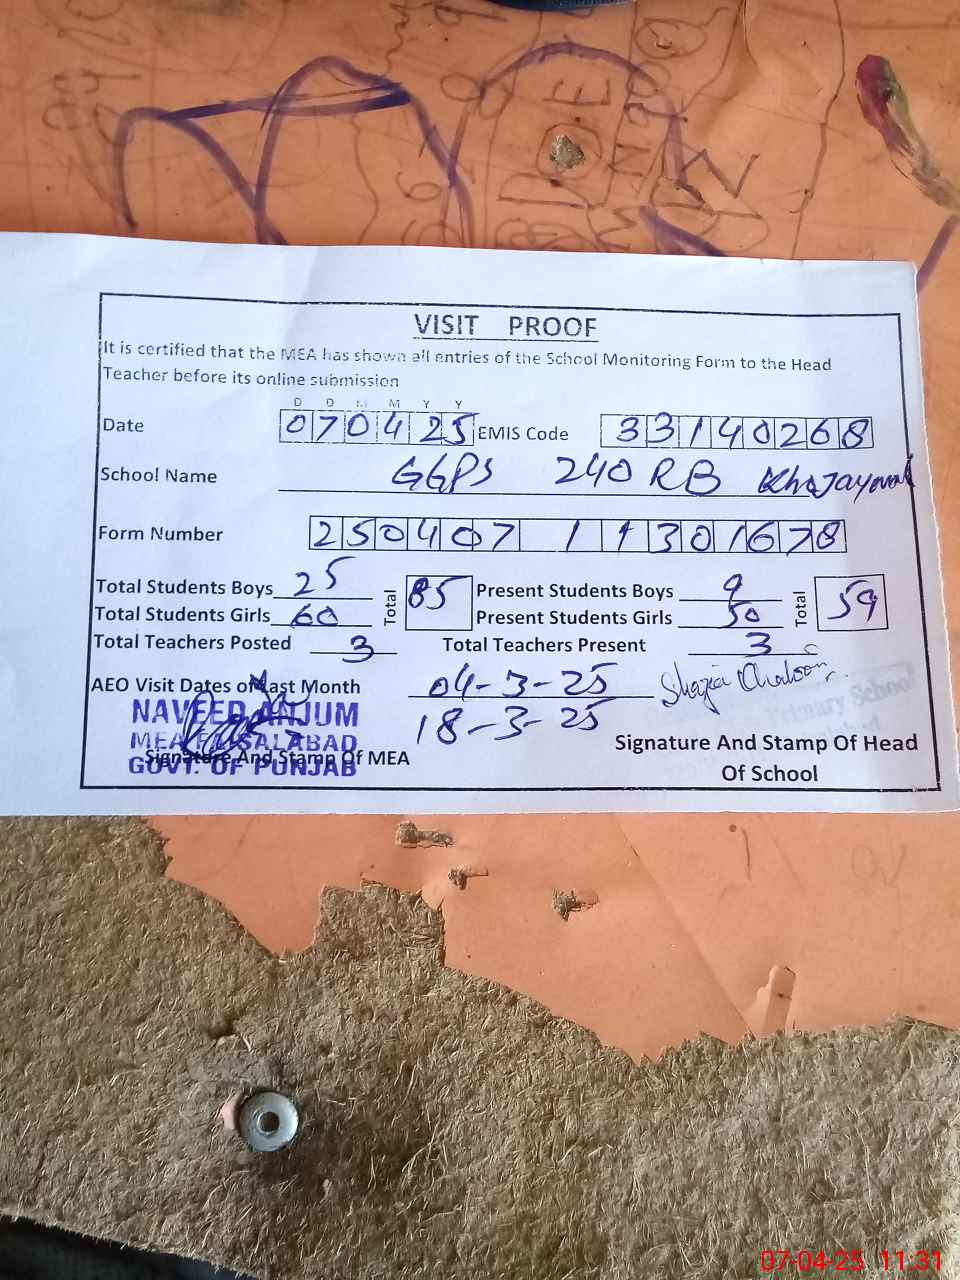 VISIT PROOF
It is certified that the MEA has shown all entries of the School Monitoring Form to the Head
Teacher before its online submission
D D M M Y Y
Date 070425 EMIS Code 33140268
School Name GGPS 240 RB
Form Number 250407 11301678
Total Students Boys 25 Total 85 Present Students Boys 9 Total 59
Total Students Girls 60 Present Students Girls 50
Total Teachers Posted 3 Total Teachers Present 3
AEO Visit Dates of Last Month 04-3-25
18-3-25
Shazia
Primary School
NAVEED ANJUM
MEA FAISALABAD
GOVT. OF PUNJAB
Signature And Stamp Of MEA
Signature And Stamp Of Head
Of School
07-04-25 11:31